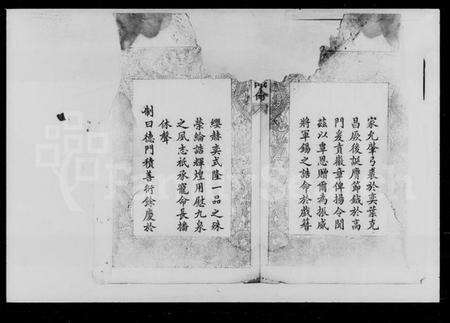 家允肇弓裘於奕葉克
昌厥後誕膺節鉞於高
門爰賁徽章俾揚令聞
茲以覃恩贈爾為振威
將軍錫之誥命於戲簪
纓赫奕式隆一品之殊
榮綸誥輝煌用慰九泉
之夙志祇承寵命長播
休聲
制曰德門積善衍餘慶於